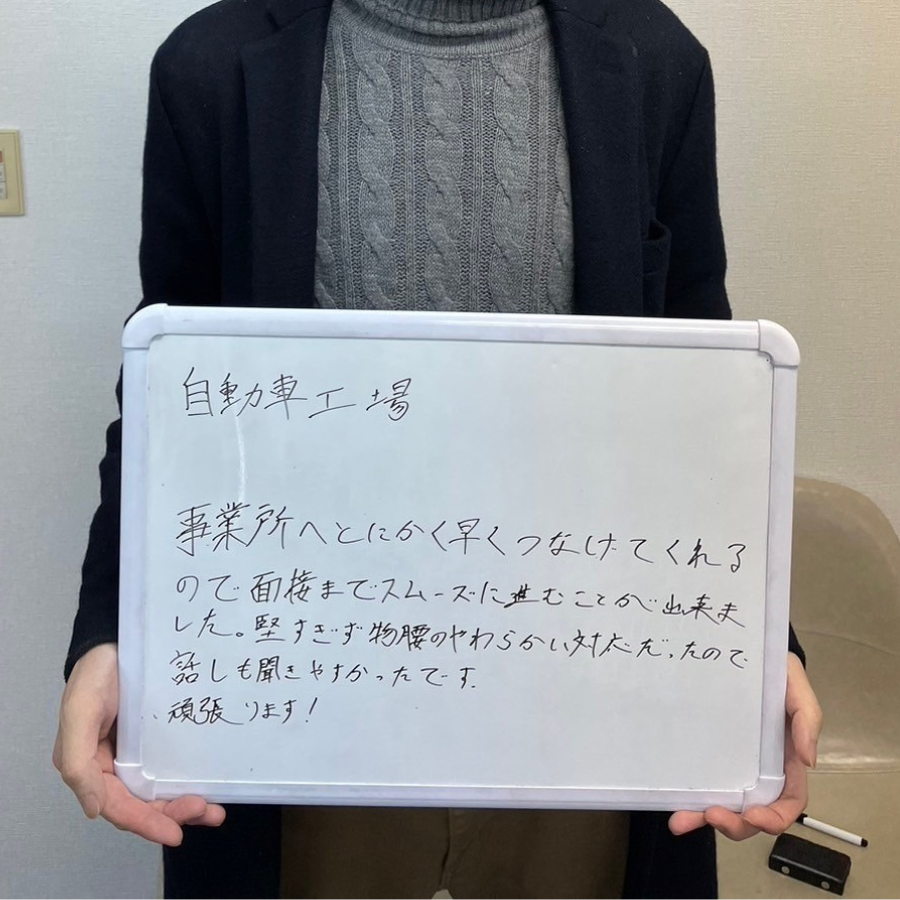 自動車工場
事業所へとにかく早くつなげてくれる
ので面接までスムーズに進むことが出来ま
した。堅すぎず物腰のやわらかい対応だったので
話しも聞きやすかったです.
頑張ります!